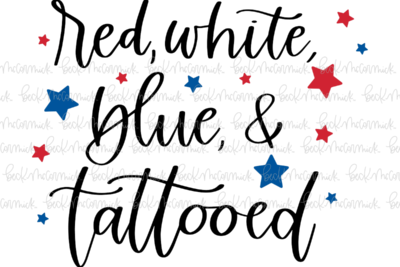 red, white,
blue, &
tattooed